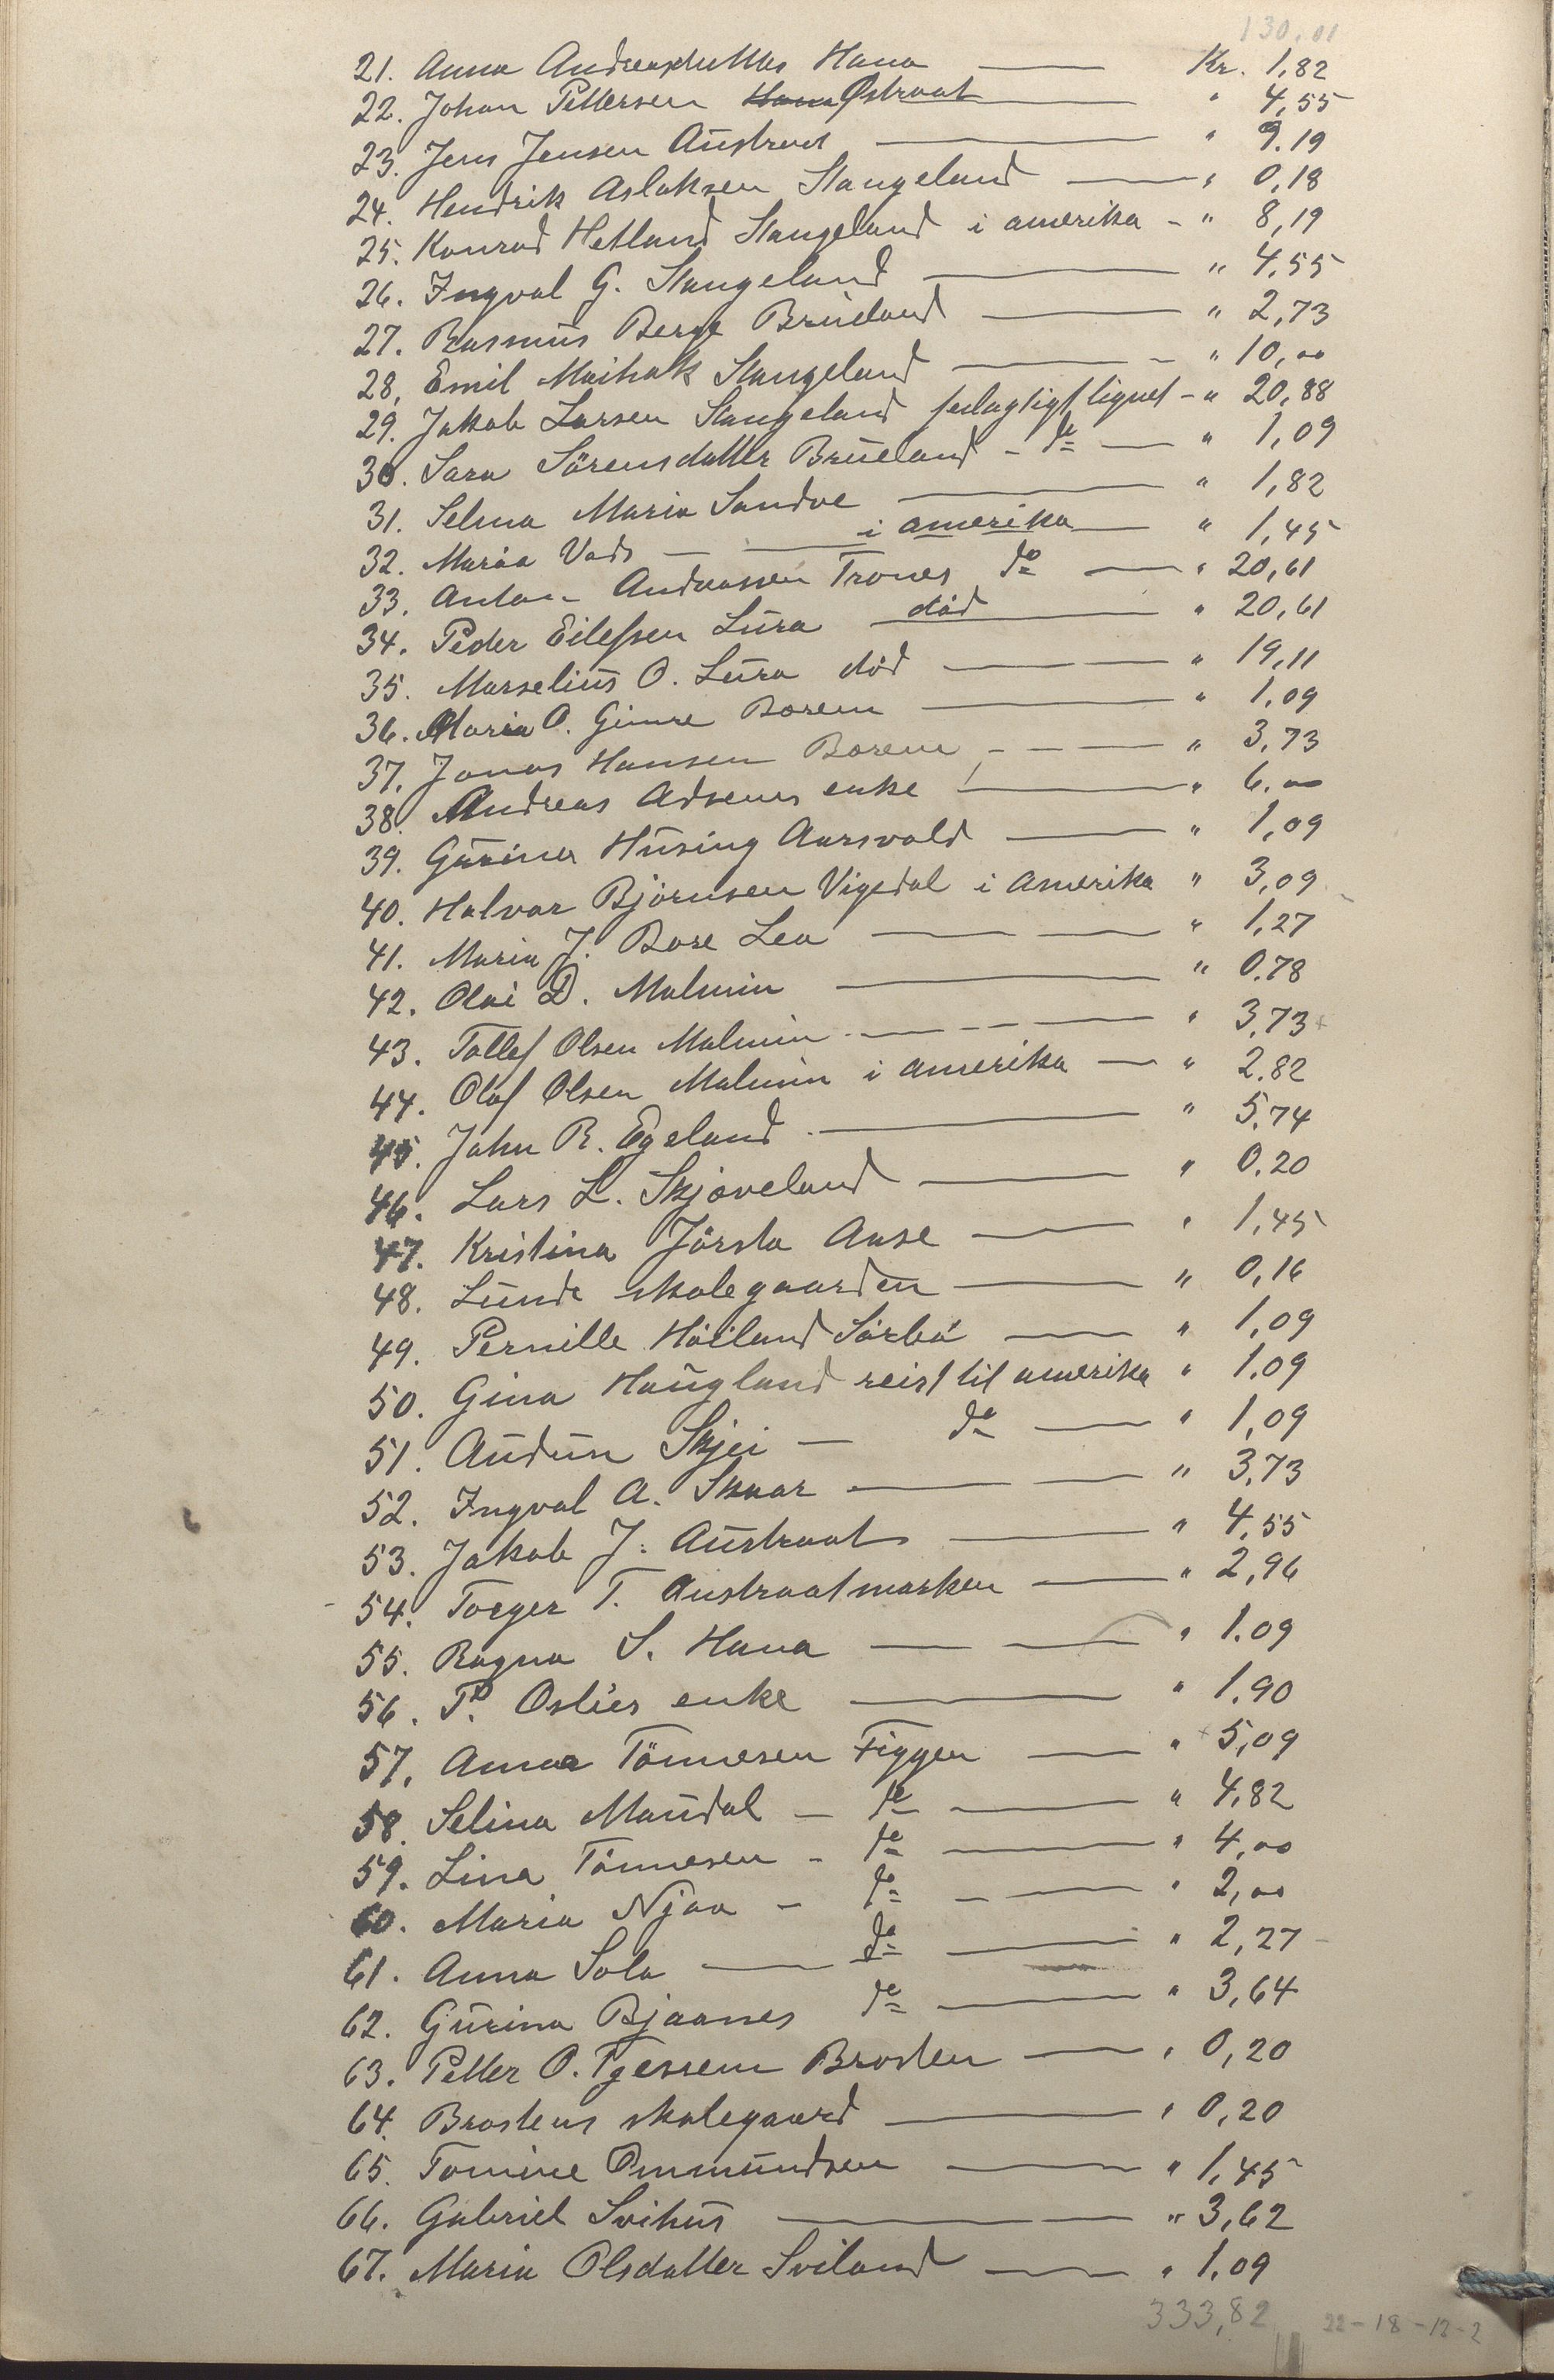 130,01
21. Anna Andreasdatter Hana — Kr. 1,82
22. Johan Pettersen Hana Østraat — " 4,55
23. Jens Jensen Austraat — " 9.19
24. Hendrik Aslaksen Stangeland — " 0,18
25. Konrad Hetland Stangeland i amerika - " 8,19
26. Ingval G. Stangeland — " 4,55
27. Rasmus Berge Brueland — " 2,73
28. Emil Maihak Stangeland — " 10,00
29. Jakob Larsen Stangeland feilagtigt lignet - " 20,88
30. Sara Sörensdatter Brueland - do — " 1,09
31. Selma Maria Sandve — " 1,82
32. Maria Vads — i amerika — " 1,45
33. Anton Andreassen Trones do — " 20,61
34. Peder Eilefsen Lura død — " 20,61
35. Marselius O. Lura död — " 19,11
36. Maria O. Gimre Borem — " 1,09
37. Jonas Hansen Borem - — " 3,73
38. Andreas Adsens enke — " 6.00
39. Gurina Husing Aarsvold — " 1,09
40. Halvar Björnsen Vigedal i Amerika " 3,09
41. Maria J. Bore Lea — " 1,27
42. Olai D. Malmin — " 0.78
43. Tollef Olsen Malmin — " 3,73
44. Olaf Olsen Malmin i amerika — " 2.82
45. John R. Egeland — " 5,74
46. Lars L. Skjæveland — " 0.20
47. Kristina Jörsta Aase — " 1,45
48. Lunde skolegaarden — " 0,16
49. Pernille Höiland Sörbö — " 1,09
50. Gina Haugland reist til amerika " 1.09
51. Audun Skjei — do — " 1,09
52. Ingval A. Skaar — " 3,73
53. Jakob J. Austraat — " 4,55
54. Torger T. Austraatmarken — " 2,96
55. Ragna S. Hana — " 1.09
56. P. Oslies enke — " 1.90
57. Anna Tönnesen Figgen — " 5,09
58. Selina Maudal — do — " 4,82
59. Lina Tönnesen - do — " 4,00
60. Maria Njaa - do - — " 2,00
61. Anna Sola — do — " 2,27
62. Gurina Bjaanes do — " 3,64
63. Petter O. Tjessem Brosten — " 0,20
64. Brostens skolegaard — " 0,20
65. Tomine Ommundsen — " 1,45
66. Gabriel Svihus — " 3,62
67. Maria Olsdatter Sviland — " 1.09
333,82
22-18-12-2